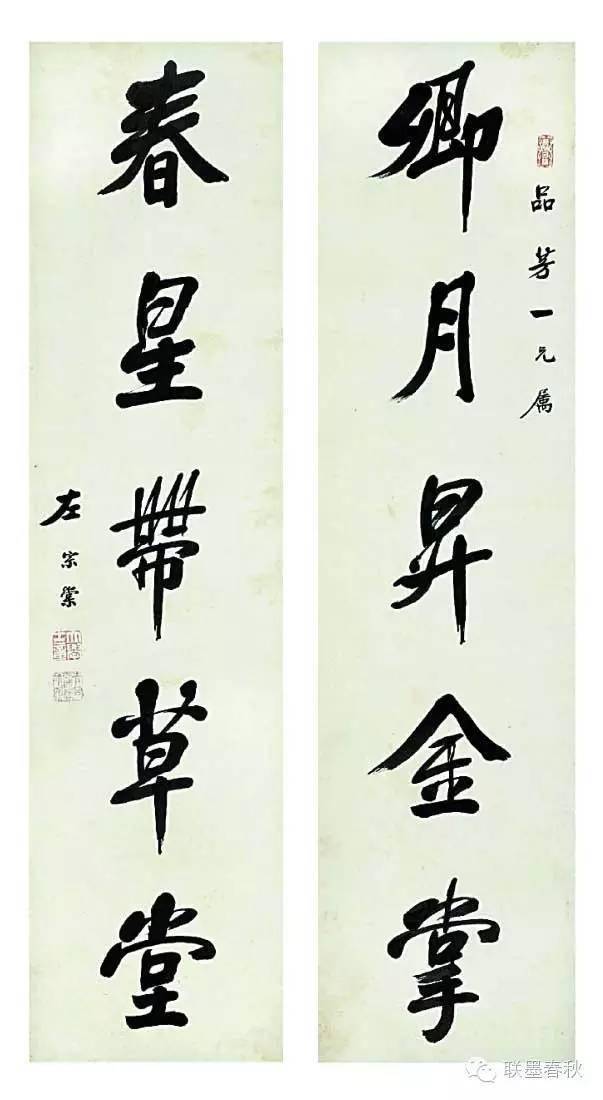 品芳一兄属
卿月昇金掌
春星帶草堂
左宗棠
联墨春秋